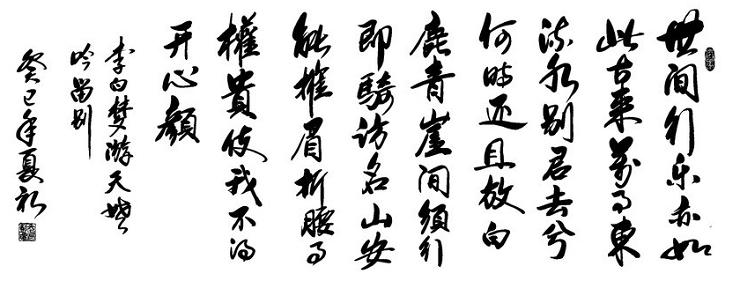 世间行乐亦如
此古来萬事東
流水别君去兮
何時还且放白
鹿青崖间須行
即騎访名山安
能摧眉折腰事
權貴使我不得
开心顏
李白梦游天姥
吟留别
癸巳年夏初